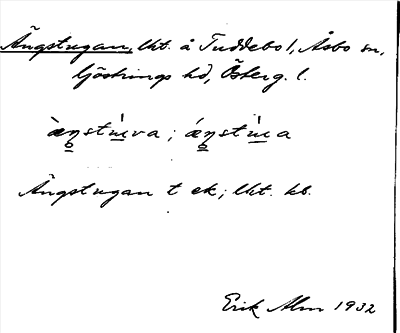 Ängstugan, lht. å Tuddebo 1, Åsbo sn,
Göstrings hd, Österg. l.
ængstúva; ængstúa
Ängstugan t ek; lht. hb.
Erik Alm 1932